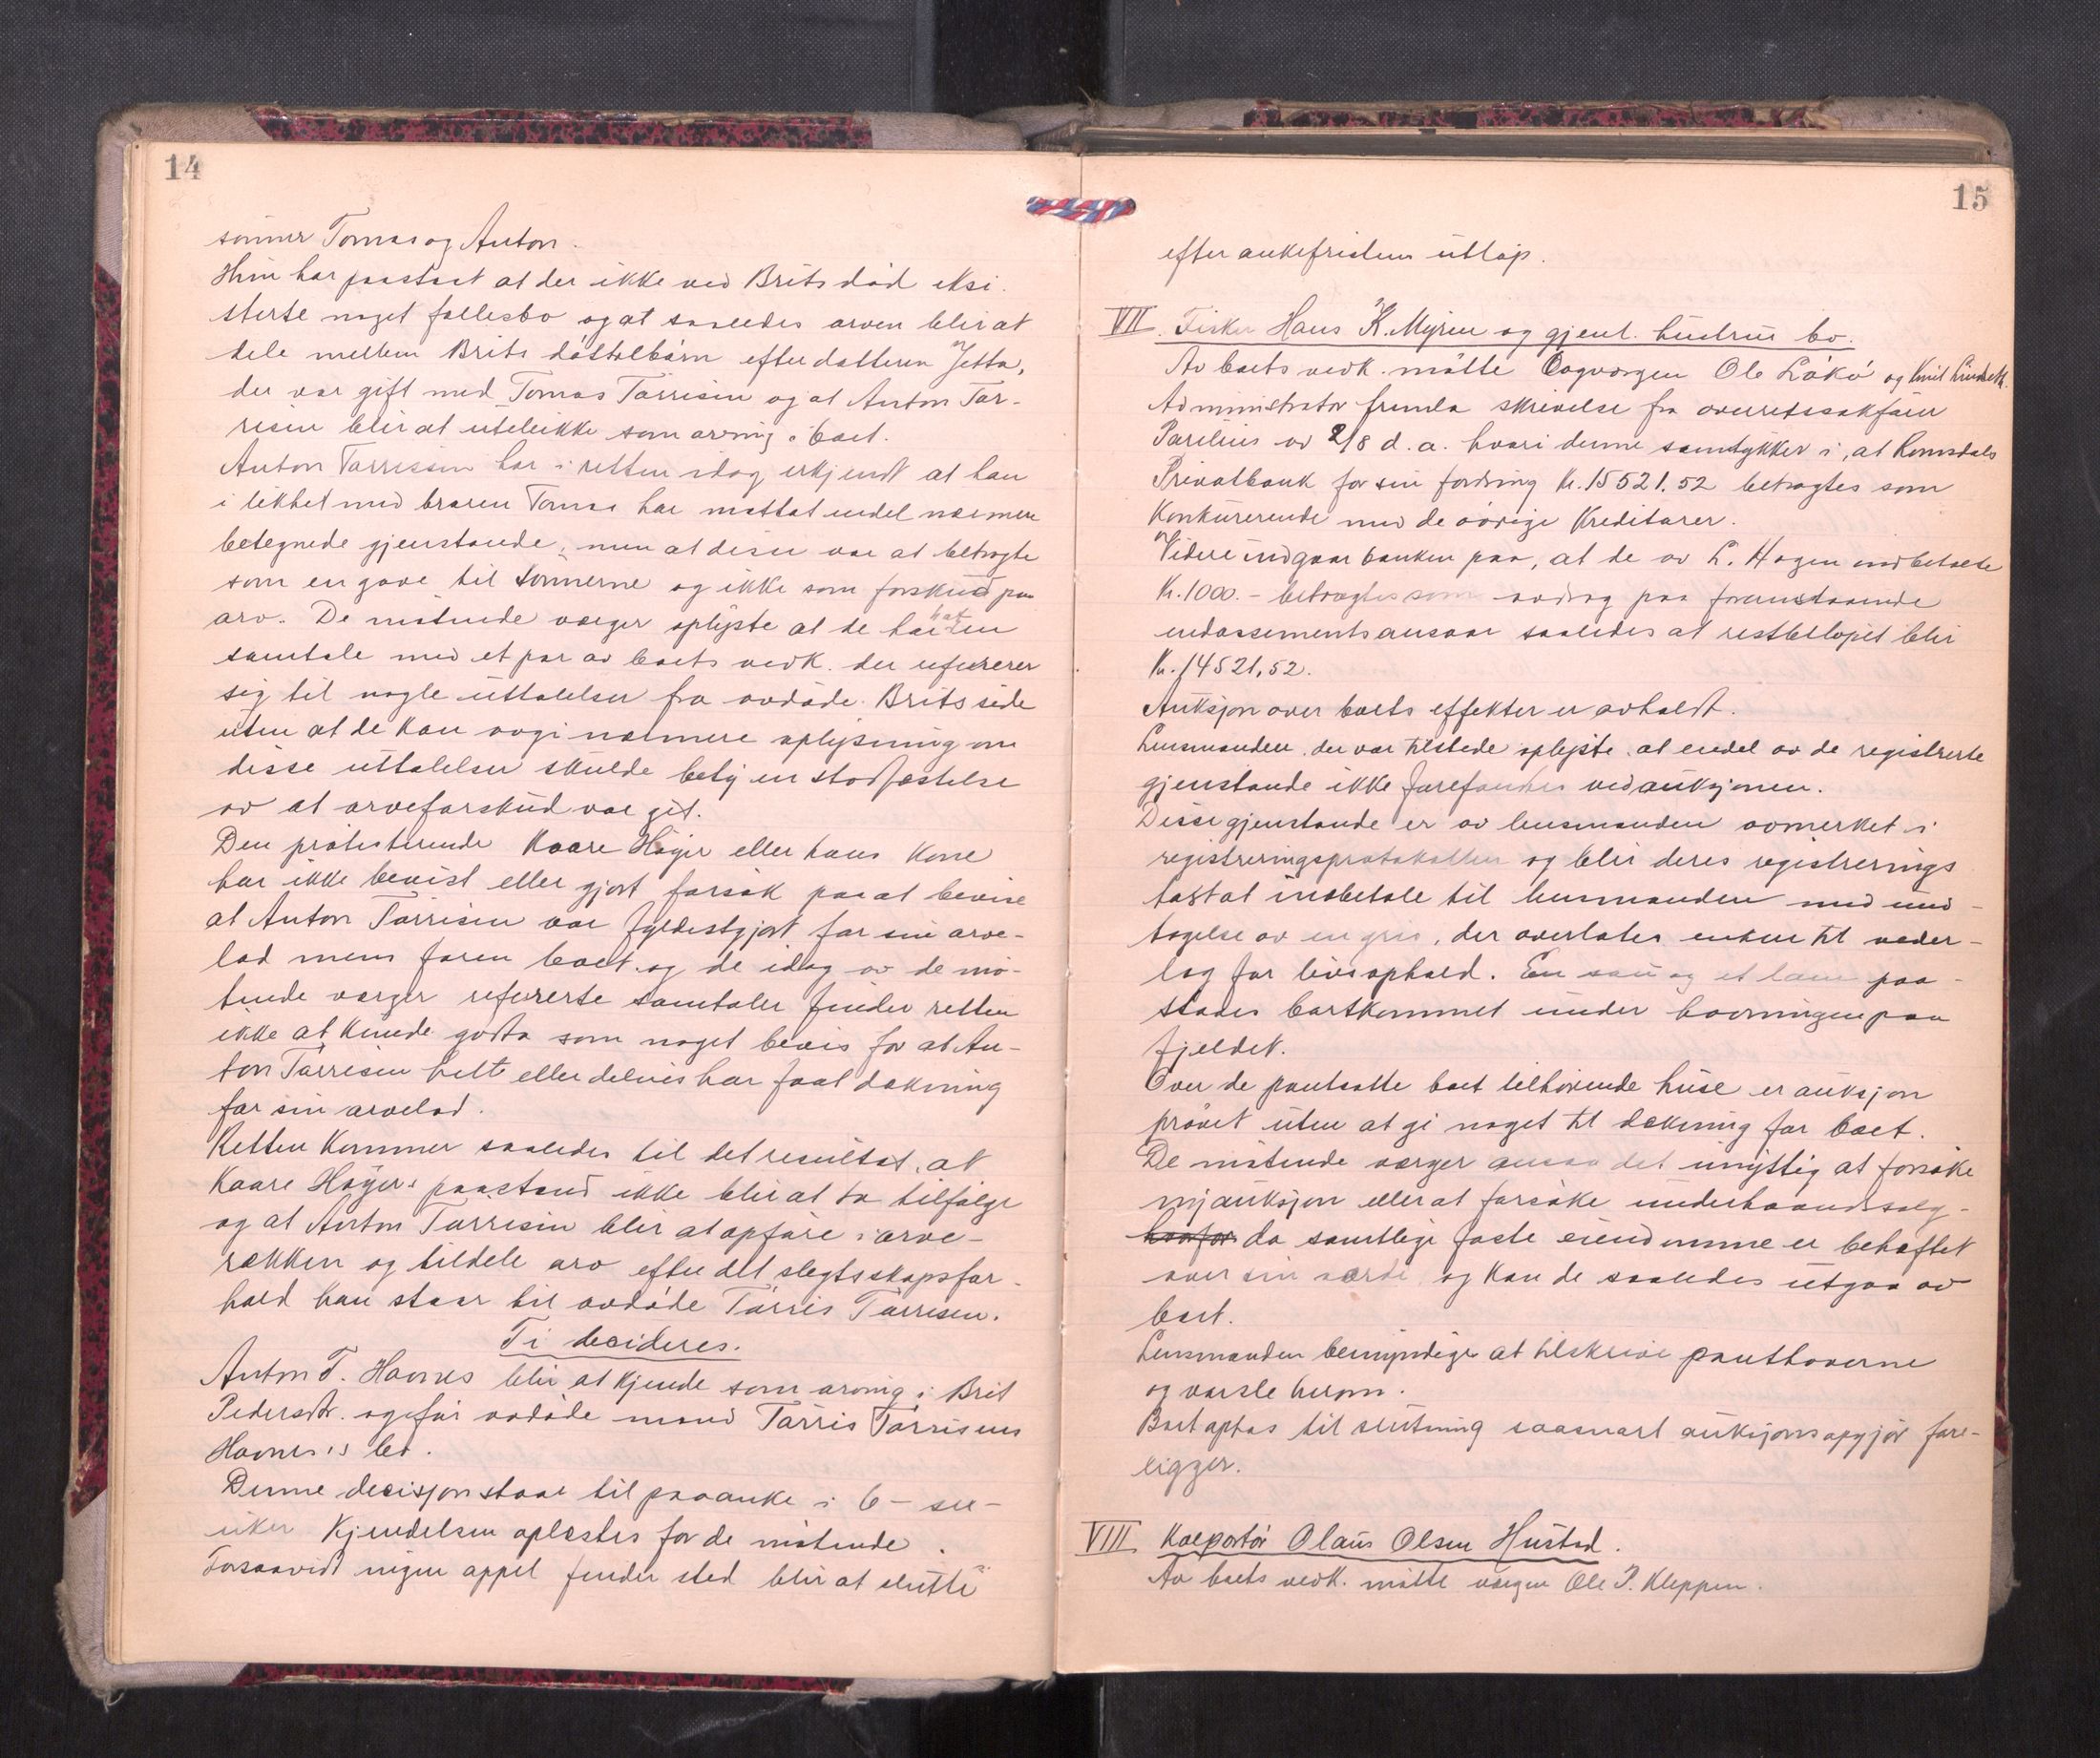 14
sønner Tomas og Anton.
Hun har paastaat at der ikke ved Brits død eksi-
sterte noget fællesbo og at saaledes arven blir at
dele mellem Brits døttelbørn efter datteren Jetta,
der var gift med Tomas Tarrisen og at Anton Tar-
risen blir at utelukke som arving i boet.
Anton Tarrissen har i retten idag erkjendt at han
i likhet med broren Tomas har mottat endel nærmere
betegnede gjenstande, men at disse var at betragte
som en gave til sønnerne og ikke som forskud paa
arv. De møtende værger oplyste at de har hat en
samtale med et par av boets vedk. der refererer
sig til nogle uttalelser fra avdøde Brits side
uten at de kan avgi nærmere oplysning om
disse uttalelser skulde bety en stadfæstelse
av at arveforskud var git.
Den protesterende Kaare Høyer eller hans kone
har ikke bevist eller gjort forsøk paa at bevise
at Anton Tarrisen var fyldestgjort for sin arve-
lod mens faren levet og de idag av de mø-
tende værger refererte samtaler finder retten
ikke at kunde godta som noget bevis for at An-
ton Tarrisen helt eller delvis har faat dækning
for sin arvelod.
Retten kommer saaledes til det resultat, at
Kaare Høyers paastand ikke blir at ta tilfølge
og at Anton Tarrisen blir at opføre i arve-
rækken og tildele arv efter det slegtsskapsfor-
hold han staar til avdøde Tarris Tarrisen.
Ti decideres.
Anton T. Havnes blir at kjende som arving i Brit
Pedersdtr. og før avdøde mand Tarris Tarrisens
Havnes's bo.
Denne decisjon staar til paaanke i 6 - sex -
uker. Kjendelsen oplæstes for de møtende.
Forsaavidt ingen appel finder sted blir at slutte
15
efter ankefristens utløp.
VII. Fisker Hans K. Myren og gjenl. hustrus bo.
Av boets vedk. møtte Lagvergen Ole Løkø og Knut
Administrator fremla skrivelse fra overretssakfører
Parelius av 2/8 d.a. hvori denne samtykker i, at Romsdals
Privatbank for sin fordring Kr. 15521.52 betragtes som
Konkurerende med de øvrige Kreditorer.
Videre indgaar banken paa, at de av L. Hagen indbetalte
Kr. 1000.- betragtes som avdrag paa foranstaaende
endossementsansvar saaledes at restbeløpet blir
Kr. 14521,52.
Auksjon over boets effekter er avholdt.
Lensmanden der var tilstede oplyste at endel av de registrerte
gjenstande ikke forefandtes ved auksjonen.
Disse gjenstande er av lensmanden avmerket i
registreringsprotokollen og blir deres registrerings
takst at indbetale til lensmanden med und-
tagelse av en gris, der overlates enken til veder-
lag for livsophold. En sau og et lam paa-
stades bortkommet under havningen paa
fjeldet.
Over de pantsatte boet tilhørende huse er auksjon
prøvet uten at gi noget til dækning for boet.
De møtende værger ansaa det unyttig at forsøke
ny auksjon eller at forsøke underhaandssalg
hvorfor da samtlige faste eiendomme er behæftet
over sin værdi og kan de saaledes utgaa av
boet.
Lensmanden bemyndiges at tilskrive panthaverne
og varsle herom.
Boet optas til slutning saasnart auksjonsopgjør fore-
ligger.
VIII Kolportør Olaus Olsen Hustad.
Av boets vedk. møtte værgen Ole P. Kleppen.